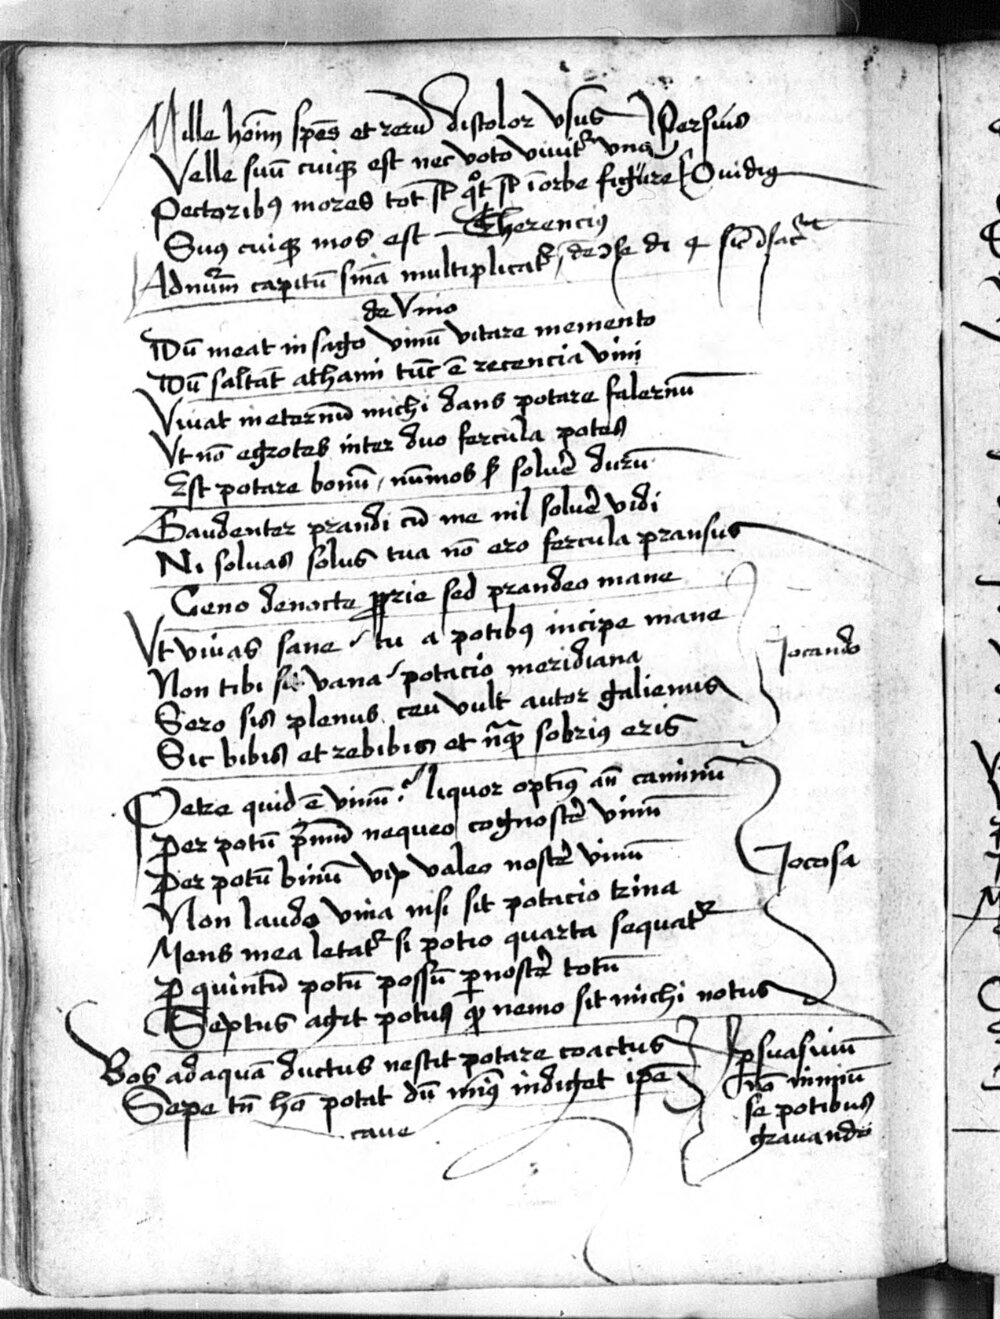 Mille hoīm spēs et rerū discolor vsus Persius
Velle suū cuiq; est nec voto viuitr vno
Pectoribꝯ mores tot st qͦt st ī orbe figure Ouidiꝯ
Suꝯ cuiq; mos est Therencius
Ad nūm capitū sn̄ia multiplicatr de ɔse di
de Vino
Dū meat in sago vinū vitare memento
Dū saltāt athami tūc ē recencia vini
Viuat in eternū michi dans potare falernū
Vt nō egrotes inter duo fercula potes
Est potare bonū / nūmos sꝫ soluē durū
Gaudenter prandi cū me nil soluē vidi
Ni soluas solus tua nō ero fercula pransus
Ceno de nocte ꝓprie sed prandeo mane
Vt viuas sane / tu a potibꝯ incipe mane
Non tibi sit vana / potacio meridiana
Sero sis plenus ceu vult autor galienus
Sic bibis et rebibis et nūq̄ sobriꝯ eris
Jocando
Petre quid ē vinū? liquor optīꝯ an̄ caminū
Per potū prīmū nequeo cognoscē vinū
Per potū binū vix valeo noscē vinū
Jocosa
Non laudo vina nisi sit potacio trina
Mens mea letatr si potio quarta sequatr
ꝑ quintū potū possū ꝑnoscē totū
Septus agit potus qꝫ nemo sit michi notus
Bos ad aquā ductus nescit potare coactus
Sepe tn̄ hō potat dū minꝯ indiget ipē
caue
ꝑsuasiuū
nō nimiū
se potibus
grauandi